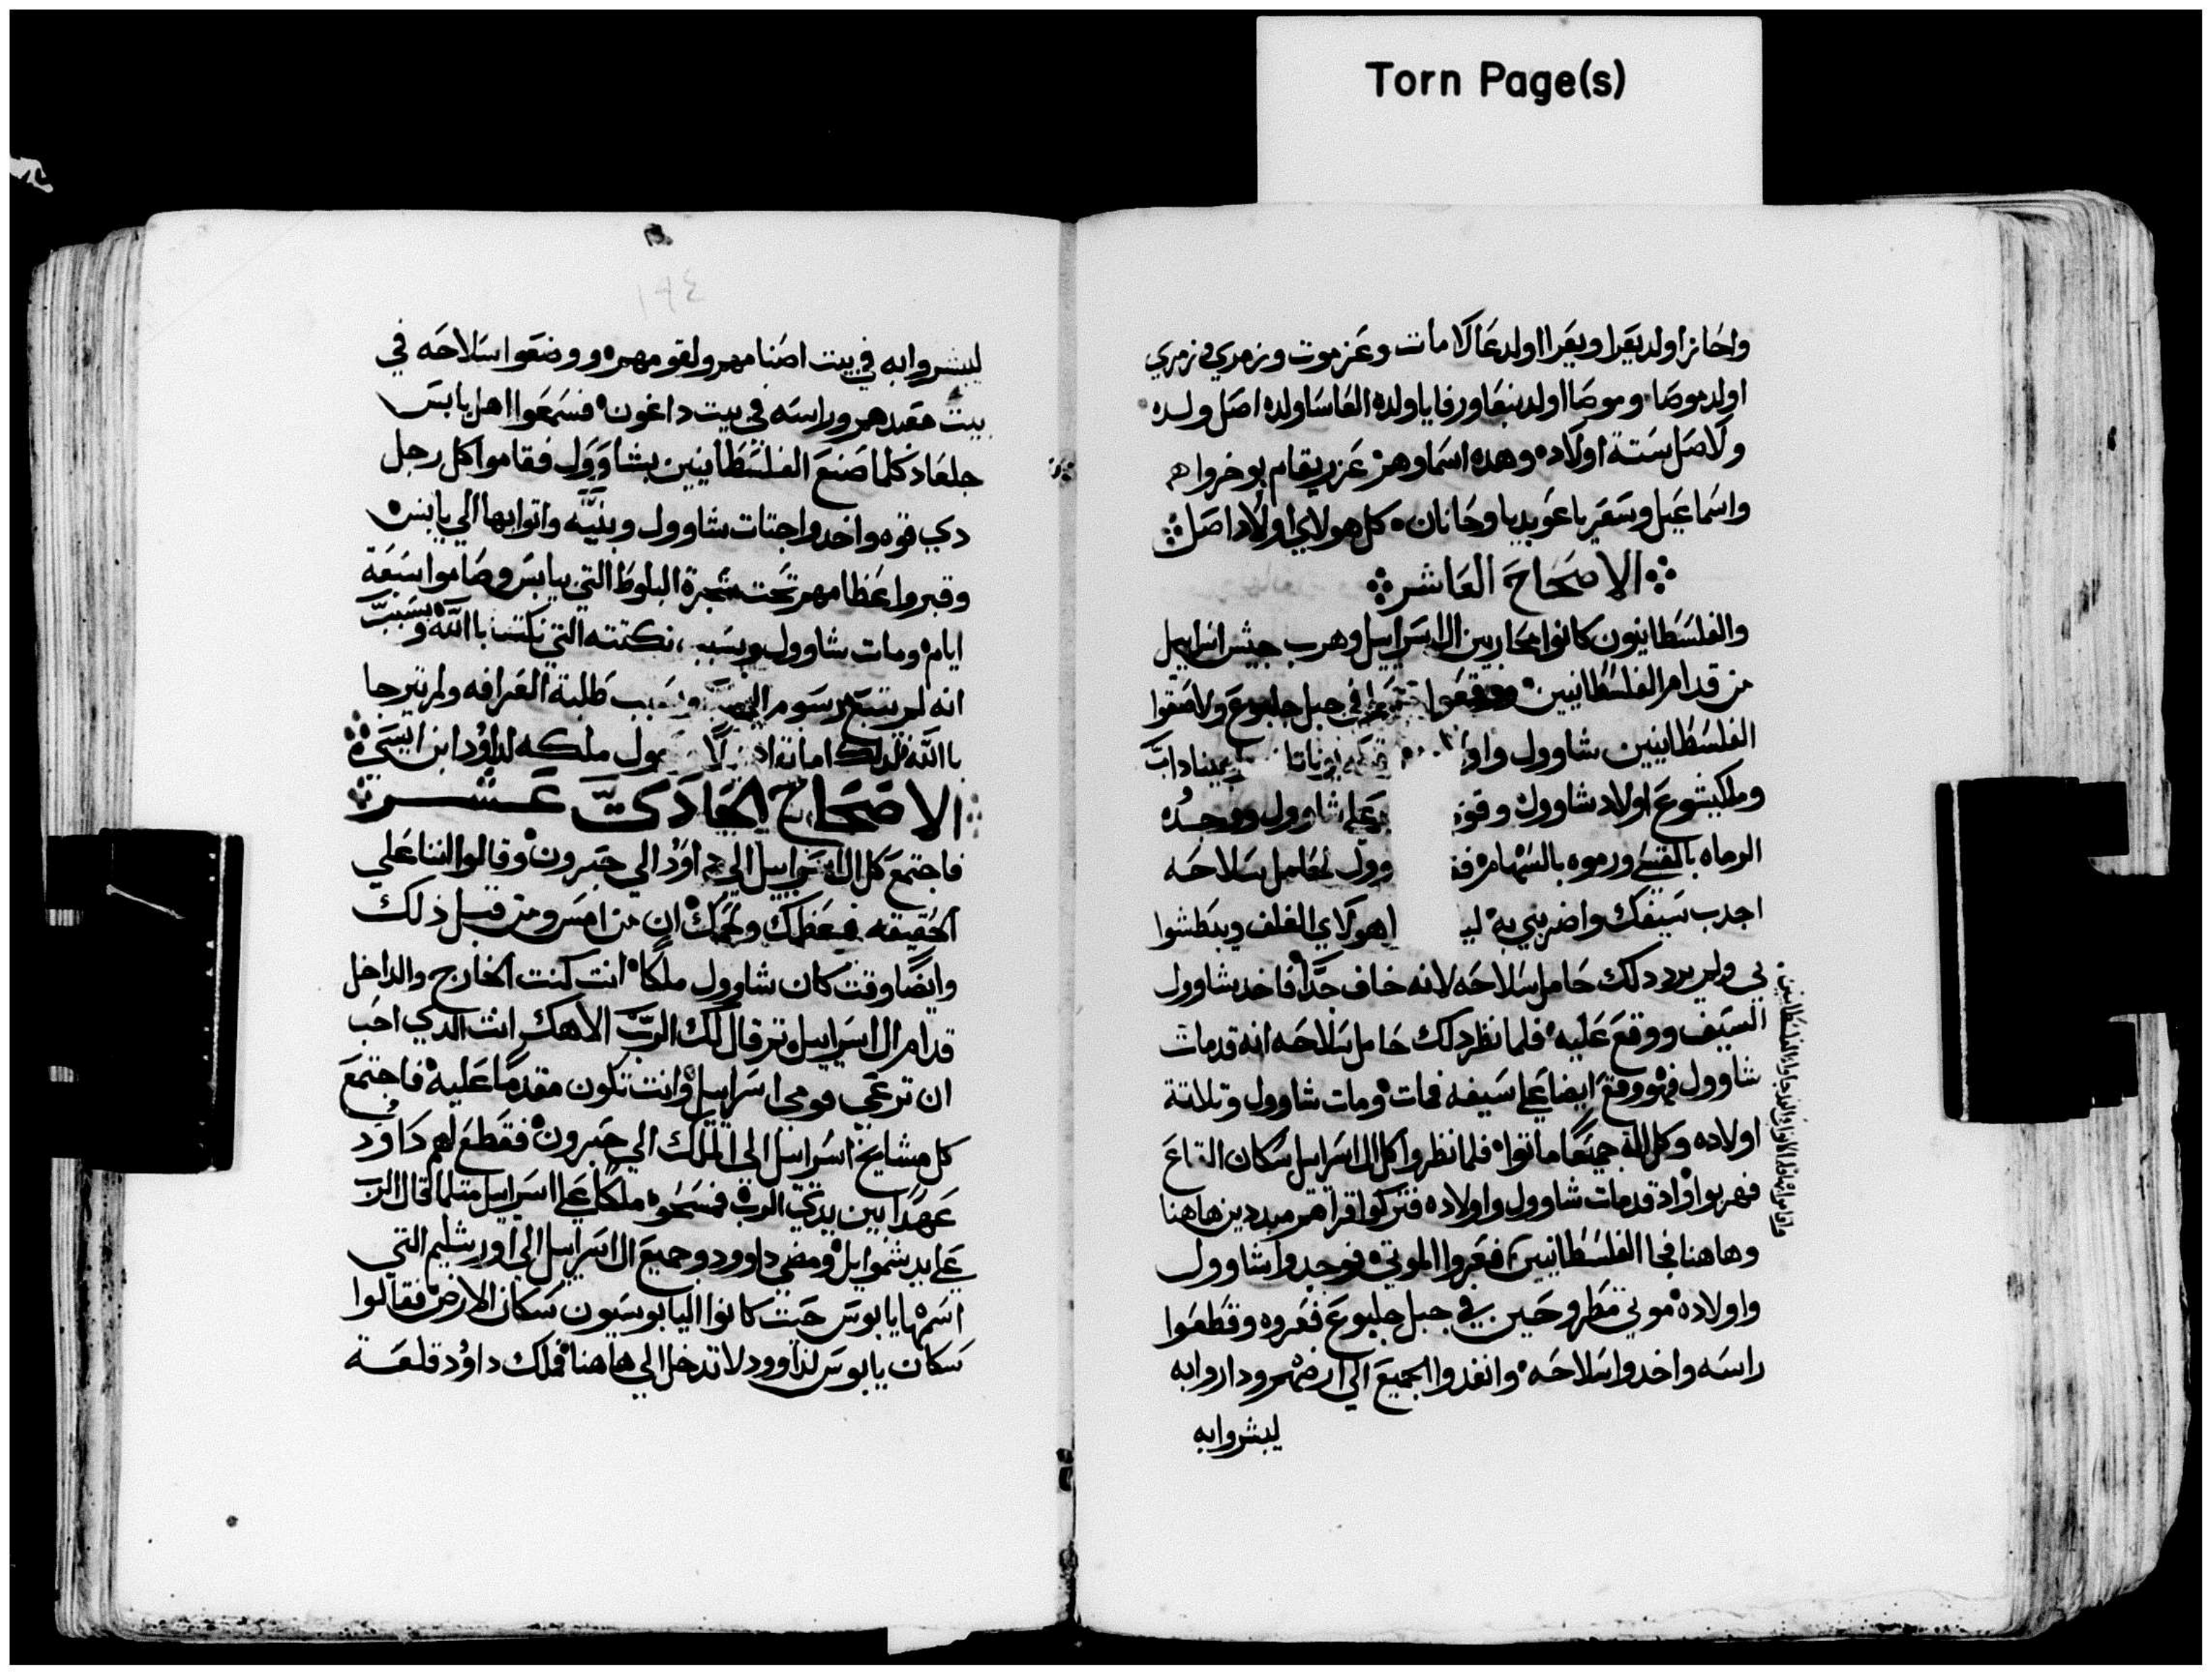 Torn Page(s)
واحاز اولد يعرا ويعرا اولد عالامات وعزموت وزمري وزمري
اولد موصا وموصا اولد بنعا ورفايا ولده العاسا ولده اصل ولده
ولاصل ستة اولاده وهده اسماوهم عزريقام بوخروا
واسماعيل وسعريا عوبديا وحانان كل هولاي اولاد اصل
الاصحاح العاشر
والفلسطانيون كانوا محاربين ال اسراييل وهرب جيش اسراييل
من قدام الفلسطانيين ووقعوا في جبل جلبوع ولاصقوا
الفلسطانيين شاوول يوناتان عيناداب
وملكيشوع اولاد شاوول علي شاوول ووجده
الرماه بالقسي ورموه بالسهام وول لحامل سلاحه
اجدب سيفك واضربني به هولاي الغلف ويبطشوا
بي ولم يرد دلك حامل سلاحه لانه خاف جدًا فاخد شاوول
السيف ووقع عليه فلما نظر دلك حامل سلاحه انه قد مات
شاوول فهو وقع ايضا علي سيفه فمات ومات شاوول وتلاتة
اولاده وكل اله جميعًا ماتوا فلما نظروا كل ال اسراييل سكان القاع
فهربوا واد قد مات شاوول واولاده فتركوا قراهم مبددين هاهنا
وهاهنا فجا الفلسطانيين فعروا الموتي فوجدوا شاوول
واولاده موتي مطروحين في جبل جلبوع فعروه وقطعوا
راسه واخدوا سلاحه وانفدوا الجميع الي ارضهم وداروا به
ليبشروا به
١٩٤
ليبشروا به في بيت اصنامهم ولقومهم ووضعوا سلاحه في
بيت معبدهم وراسه في بيت داغون فسمعوا اهل يابس
جلعاد كلما صنع الفلسطانيين بشاوول فقاموا كل رجل
دي قوه واخدوا جتات شاوول وبنيه واتوا بها الي يابس
وقبروا عظامهم تحت شجرة البلوط التي بيابس وصاموا سبعة
ايام ومات شاوول وبسبب نكتته التي نكتب بالله وبسبب
انه لم يتبع رسوم طلبة العرافه ولم يترجا
بالله لدلك اماته ملكه لداوُد ابن ايسي
الاصحاح الحادي عشر
فاجتمع كل ال اسراييل الي داوُد الي حبرون وقالوا اننا علي
الحقيقه عضمك ولحمك ان من امس ومن قبل ذلك
وايضًا وقت كان شاوول ملكًا انت كنت الخارج والداخل
قدام ال اسراييل تم قال لك الربّ الاهك انت الدي احب
ان ترعي قومي اسراييل وانت تكون مقدمًا عليه فاجتمع
كل مشايخ اسراييل الي الملك الي حبرون فقطع لهم داوُد
عهدًا بين يدي الرب فمسحوه ملكًا علي اسراييل متلما قال الرب
علي يد شموايل ومضي داوود وجميع ال اسراييل الي اورشليم التي
اسمها يابوس حيت كانوا اليابوسيون سكان الارض فقالوا
سكان يابوس لداوود لا تدخل الي هاهنا فملك داوُد قلعة